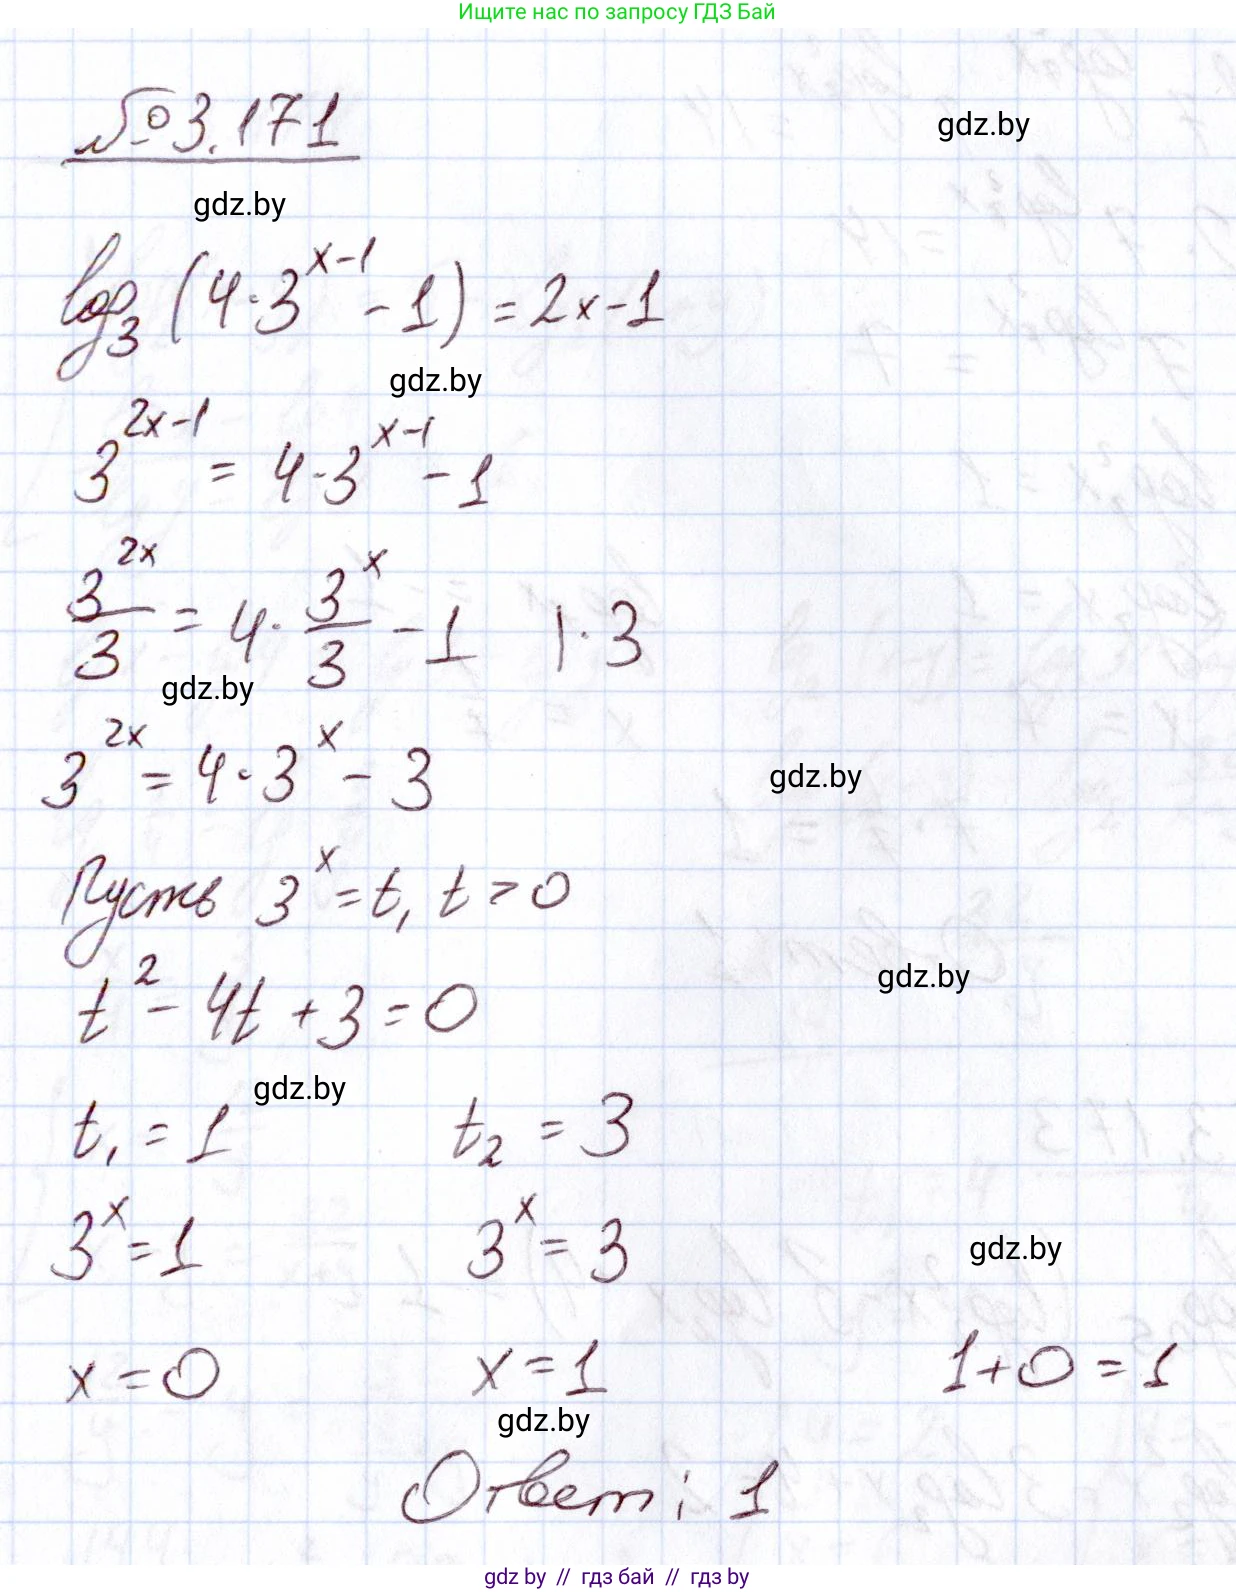 Ищите нас по запросу ГДЗ Бай
№3.171
gdz.by
gdz.by
log₃(4·3^(x-1) - 1) = 2x-1
gdz.by
3^(2x-1) = 4·3^(x-1) - 1
3^(2x)/3 = 4·3^x/3 - 1 |·3
gdz.by
3^(2x) = 4·3^x - 3
gdz.by
Пусть 3^x = t, t > 0
gdz.by
t² - 4t + 3 = 0
gdz.by
t₁ = 1 t₂ = 3
3^x = 1 3^x = 3
gdz.by
x = 0 x = 1 1+0 = 1
gdz.by
Ответ: 1
gdz by // гдз бай // гдз by